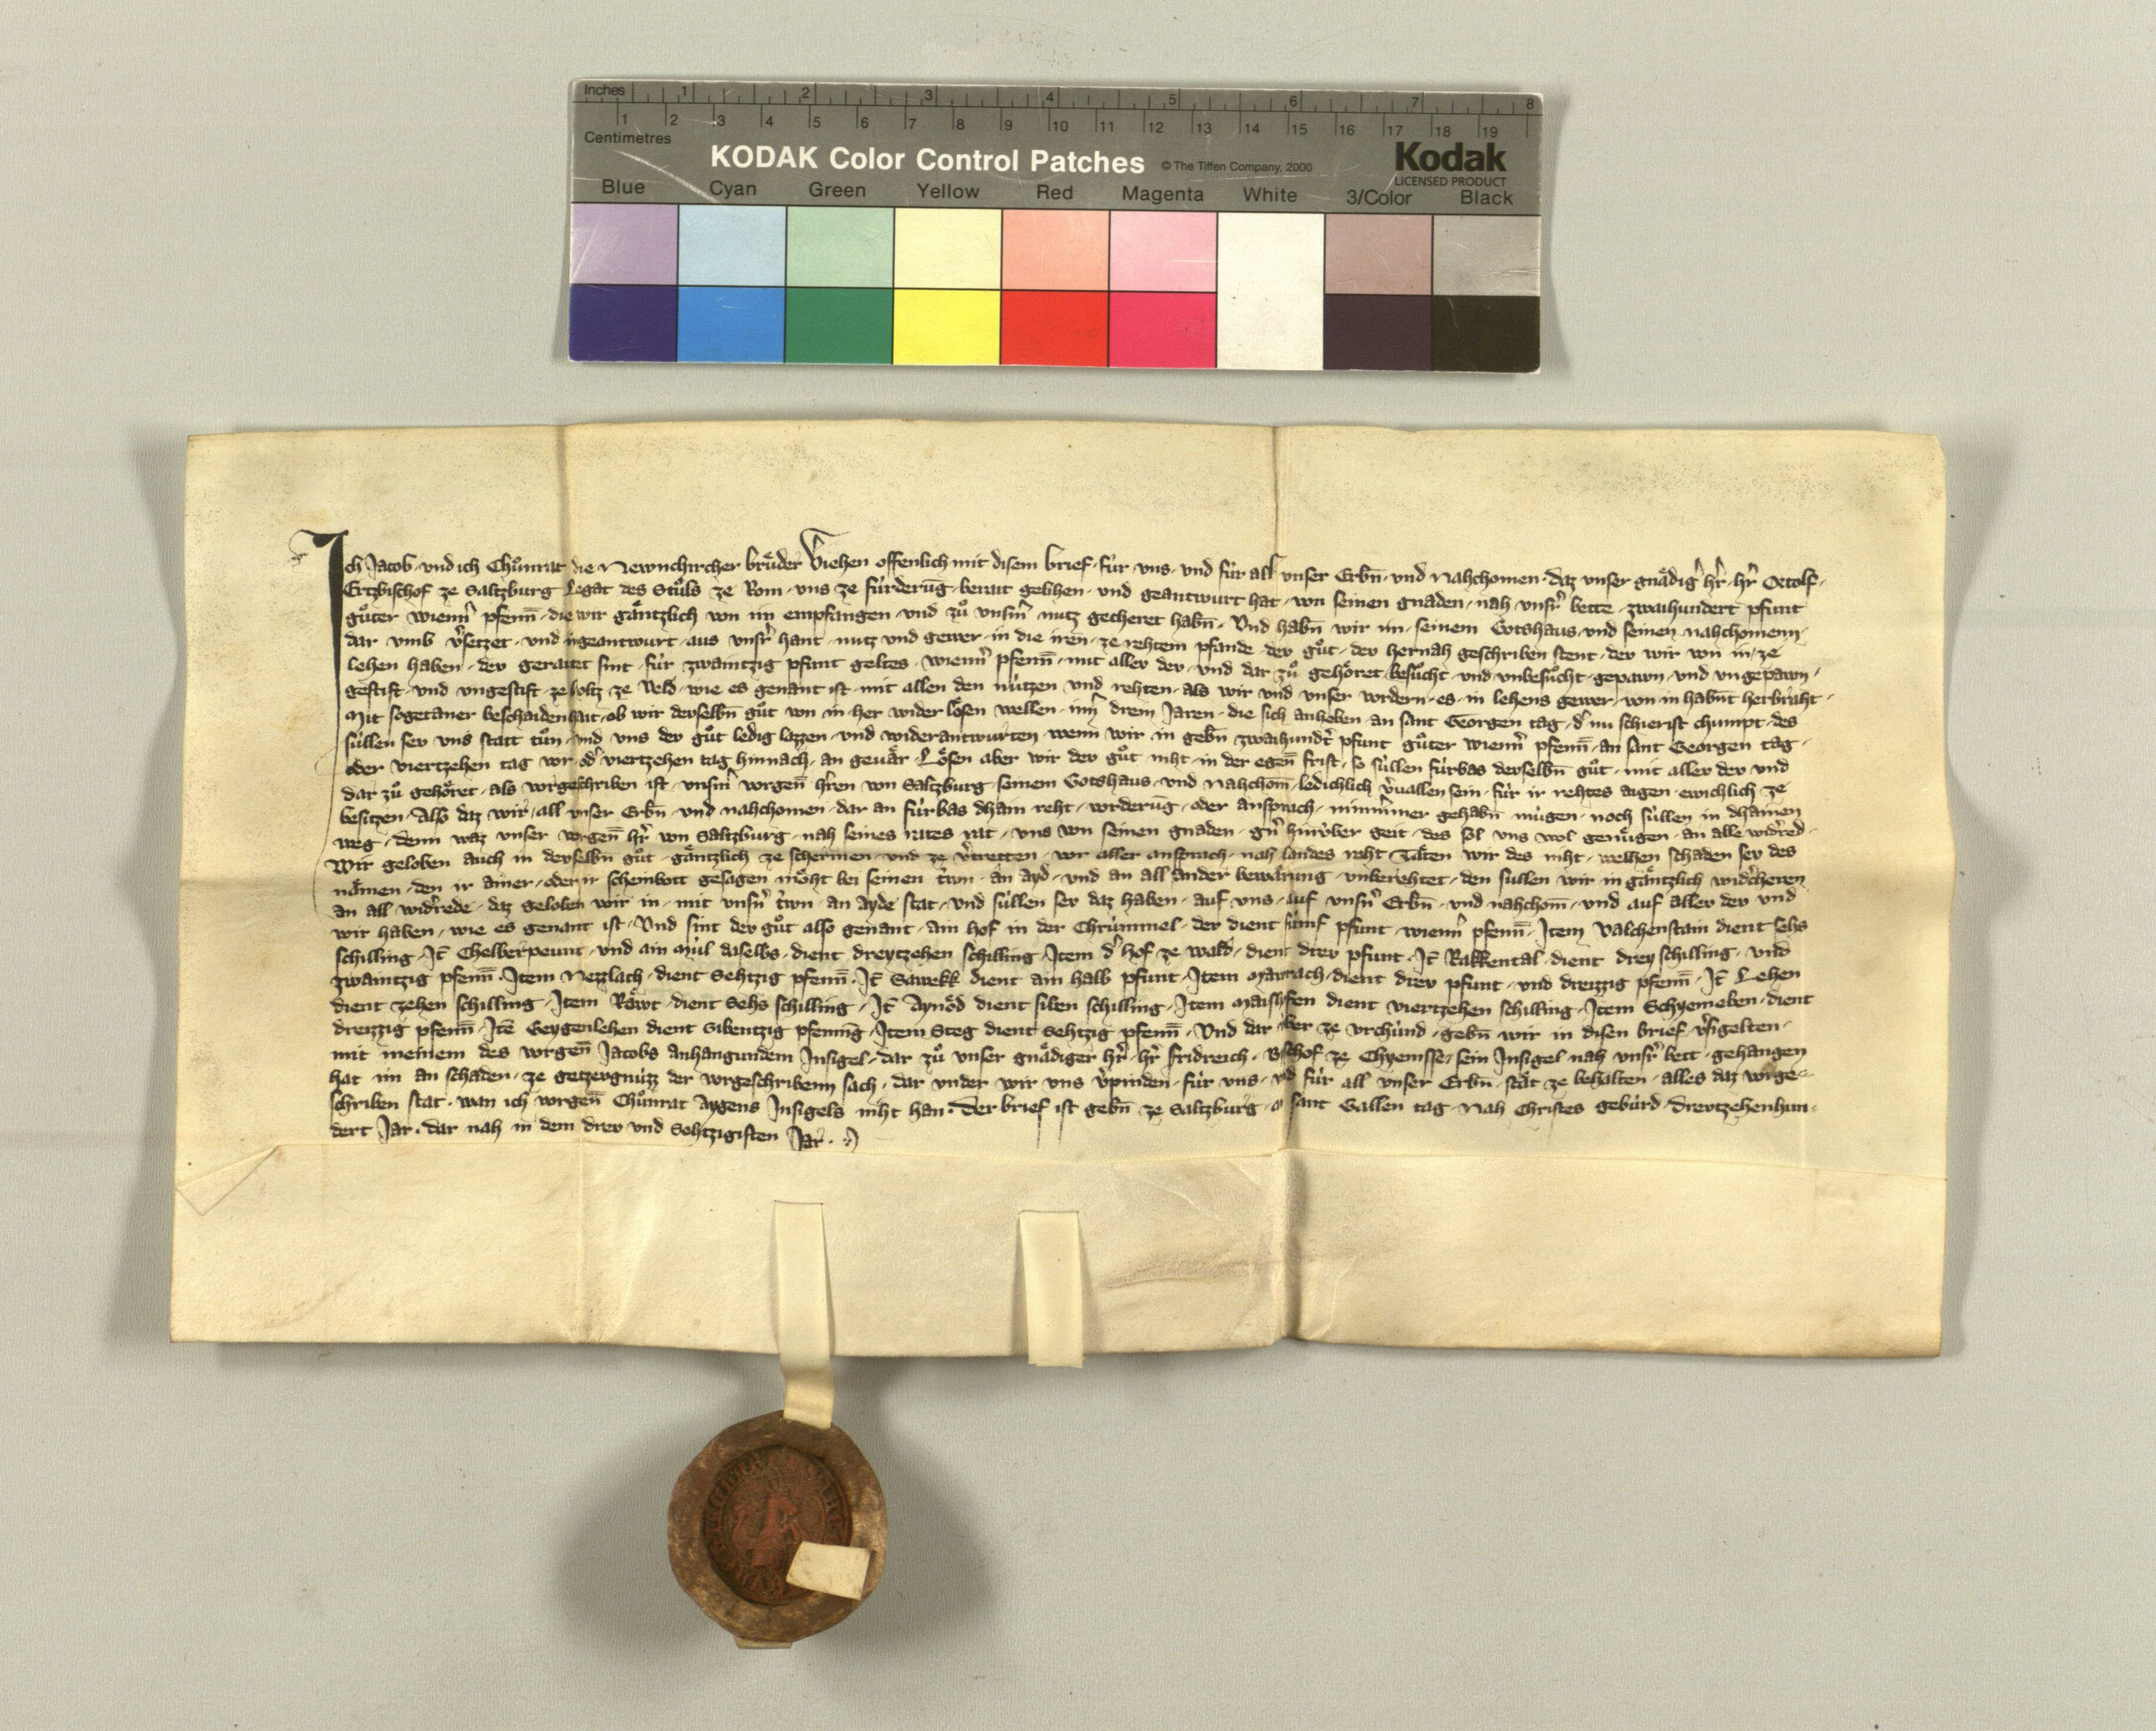 Inches 1 2 3 4 5 6 7 8
1 2 3 4 5 6 7 8 9 10 11 12 13 14 15 16 17 18 19
Centimetres
KODAK Color Control Patches © The Tiffen Company, 2000 Kodak
LICENSED PRODUCT
Blue Cyan Green Yellow Red Magenta White 3/Color Black
Ich Jacob · und ich Chůnrat die Newnchircher brůder Veriehen offenlich mit disem brief · fúr uns · und fúr all unser Erbn̄ · und Nahchomen · daz unser gnaͤdig' hr̄ · hr̄ Ortolf ·
Ertzbischof ze Saltzburg Legat des Stůls ze Rom · uns ze fúrderūg · berait gelihen · und geantwurt hat · von seinen gnaden · nah unsr' bette · zwaihundert pfunt
gůter wienn' pfenn̄ · die wir gaͤntzlich von im empfangen · und zů unserm nutz gecheret habn̄ · Und habn̄ wir im · seinem Gotshaus · und seinen nahchomenn ·
dar umb v'setzet · und ingeantwurt · aus unsr' hant · nutz und gewer · in die iren · ze rehtem pfande · dev gůt · dev hernah geschriben stent · dev wir von in · ze
lehen haben · dev geraitet sint · fúr zwaintzig pfunt geltes · wienn' pfenn̄ · mit allev dev · und dar zů gehoͤret · besůcht · und unbesůcht · gepawn · und ungepawn ·
gestift · und ungestift · ze holtz ze Veld · wie es genant ist · mit allen den nútzen und rehten · als wir und unser vordern · es · in lehens gewer · von in habnt herbraht ·
Mit sogetaner beschaidenhait · ob wir derselbn̄ gůt von in her wider loͤsen wellen · inn' drein Jaren · die sich anheben · an sant Georgen tag · d' nu schierist chumpt · des
súllen sev uns statt tůn · und uns dev gůt ledig lazzen · und widerantwurten wenn wir in gebn̄ zwaihundt' pfunt gůter wienn' pfenn̄ · an sant Georgen tag ·
oder viertzehen tag vor · od' viertzehen tag hinnach · an gevaͤr · Loͤsen aber wir dev gůt niht · in der egen̄ frist · so súllen fúrbas derselbn̄ gůt · mit allev dev und
dar zů gehoͤret · als vorgeschriben ist · unserm vorgen̄ hr̄en von Saltzburg · seinem Gotshaus · und Nahchom̄ · ledichlich v'vallen sein · fúr ir rehtes aigen · ewichlich ze
besitzen · Also daz wir · all unser Erbn̄ · und nahchomen · dar an fúrbas dhain reht · vorderūg · oder ansprach · nimmer gehabn̄ múgen · noch súllen in dhainen
weg · denn waz unser vorgen̄ hr̄ von Saltzburg · nah seines rates rat · uns von seinen gnaden · hinúber geit · des sol uns wol genuͤgen · an alle wid'red ·
Wir geloben auch in derselbn̄ gůt · gaͤntzlich ze schermen · und ze v'tretten · vor aller ansprach · nah landes reht · Taͤten wir des niht · welhen schaden sev des
naͤmen · den ir ainer · oder ir scheinbott gesagen moͤht bei seinen trwn · an ayd · und an all ander bewaͤrung · unberehtet · den súllen wir in gaͤntzlich wid'cheren
an all wid'rede · daz geloben wir in · mit unsn' trwn · an ayde stat · und súllen sev daz haben · auf uns · auf unsn' Erbn̄ · und nahchom̄ · und auf allev dev und
wir haben · wie es genant ist · Und sint dev gůt also genant · ain hof in der Chrúmmel · der dient fúmf pfunt · wienn' pfenn̄ · Item Valchenstain dient sehs
schilling · It̄ Chelberpeunt · und ain Múl daselbs · dient dreytzehen schilling · Item d' hof ze wald · dient drev pfunt · It̄ Rakkental · dient drey schilling · und
zwaintzig pfenn̄ · Item Nezzlach · dient Sehtzig pfenn̄ · It̄ Sawekk dient ain halb pfunt · Item Mawrach · dient drev pfunt · und dreizzig pfenn̄ · It̄ Lehen
dient zehen schilling · Item Raͤwt · dient Sehs schilling · It̄ Aynoͤd dient siben schilling · Item Maishofen dient viertzehen schilling · Item Schyemeben · dient
dreizzig pfenn̄ · Itē Geygenlehen dient Sibentzig pfenning · Item Steg dient Sehtzig pfenn̄ · Und dar úber ze urchúnd · gebn̄ wir in disen brief v'sigelten ·
mit meinem des vorgen̄ Jacobs anhangundem Insigel · dar zů unser gnaͤdiger hr̄ · hr̄ fridreich · Bischof ze Chyemsse · sein Insigel · nah unsr' bett · gehangen
hat im an schaden · ze getzeugnúzz der vorgeschribenn sach · dar under wir uns v'pinden · fúr uns · und fúr all unser Erbn̄ · staͤt ze behalten · alles daz vorge-
schriben stat · wan ich vorgen̄ Chůnrat aygens Insigels niht han · Der brief ist gebn̄ ze Saltzburg · an sant Gallen tag · Nah Christes gebúrd · drevtzehenhun-
dert Jar · dar nah in dem drev und Sehtzigisten Jar ·